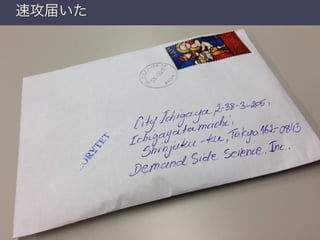 速攻届いた
City Ichigaya, 2-38-3-205,
Ichigayatamachi,
Shinjuku-ku, Tokyo 162-0843
Demand Side Science, Inc.,
ORYTET